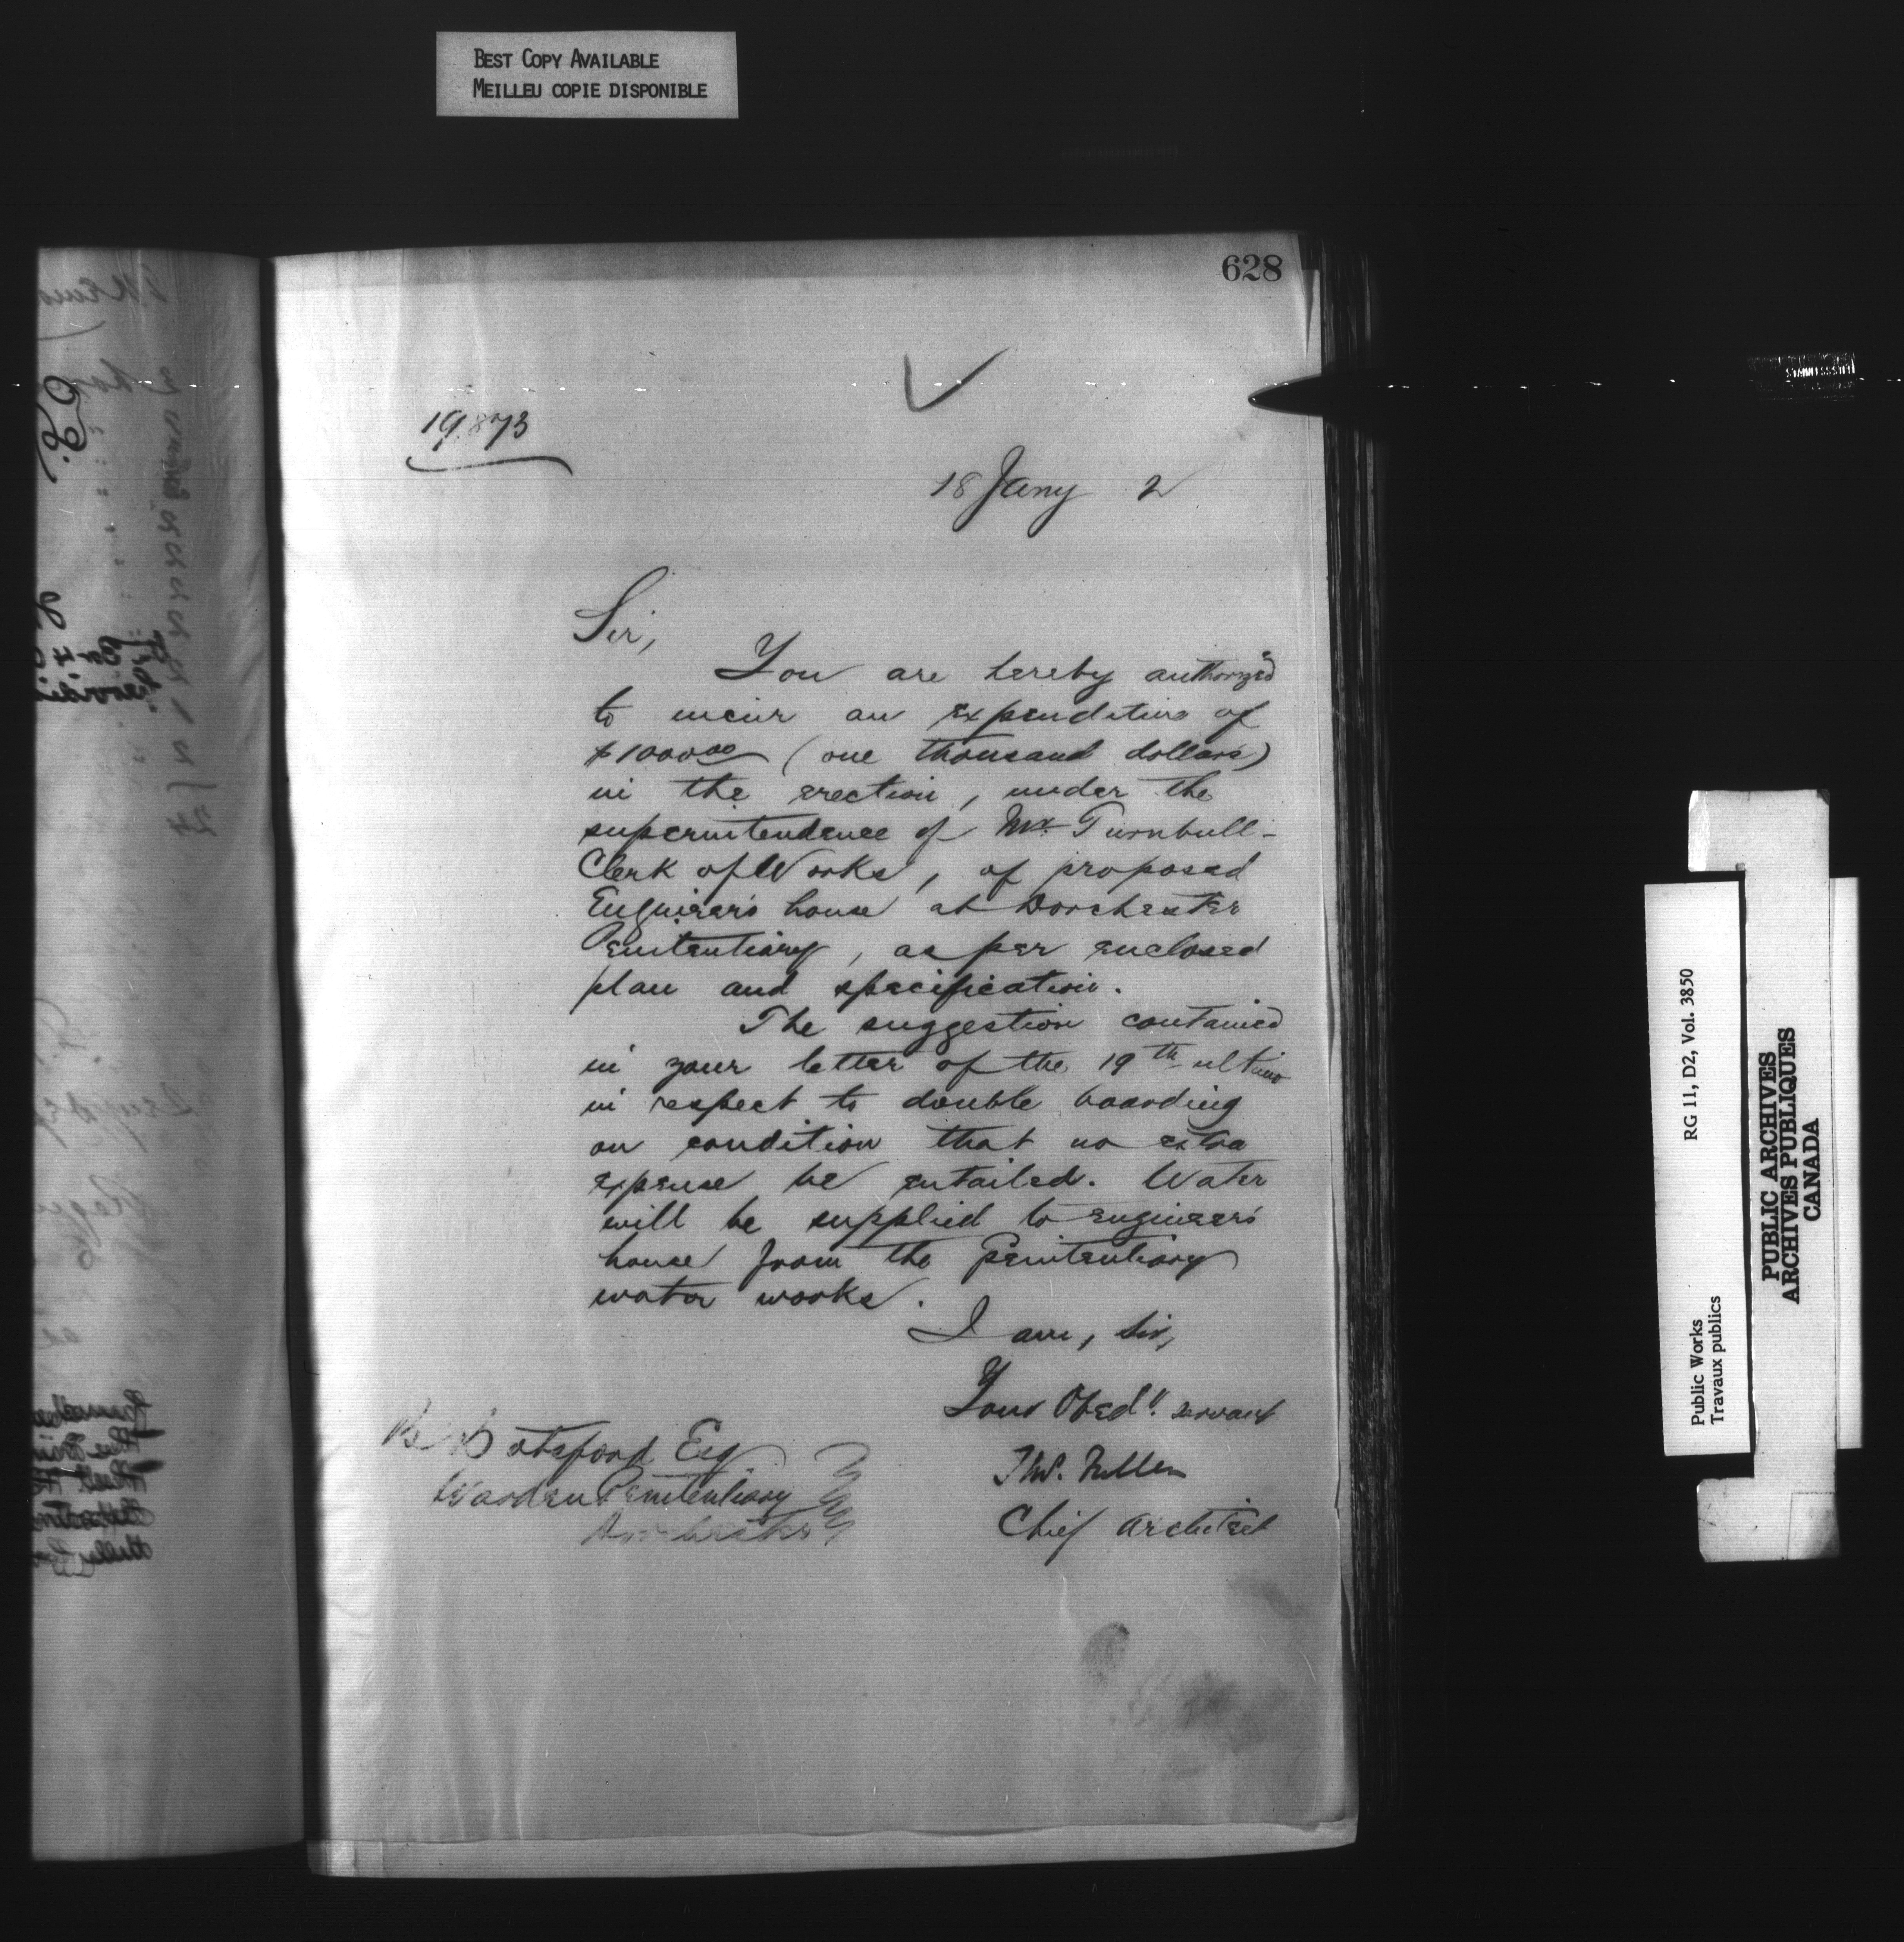 BEST COPY AVAILABLE
MEILLEU COPIE DISPONIBLE
628
19873
18 Jany 2
Sir,
You are hereby authorized
to incur an expenditure of
$1000.00 (one thousand dollars)
in the erection, under the
superintendence of Mr. Turnbull -
Clerk of Works, of proposed
Engineer's house at Dorchester
Penitentiary, as per enclosed
plan and specification.
The suggestion contained
in your letter of the 19th ultimo
in respect to double boarding
on condition that no extra
expense be entailed. Water
will be supplied to engineer's
house from the Penitentiary
water works.
I am, Sir,
Your Obedt. servant
Thos. Fuller
Chief Architect
B Botsford Esq
Warden Penitentiary
Dorchester
RG 11, D2, Vol. 3850
Public Works
Travaux publics
PUBLIC ARCHIVES
ARCHIVES PUBLIQUES
CANADA